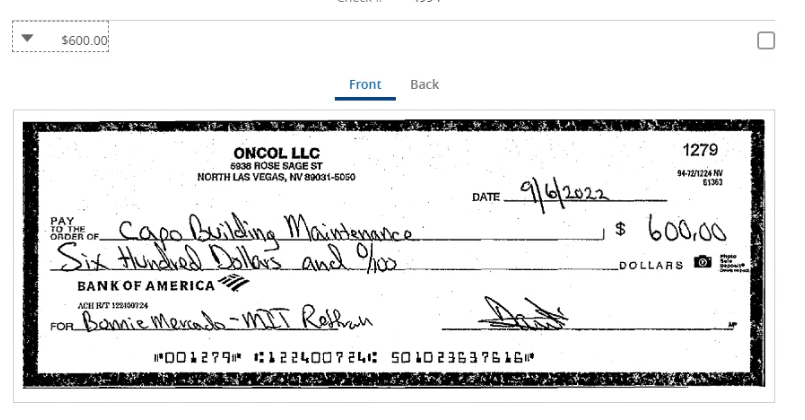 $600.00
Front Back
ONCOL LLC
5938 ROSE SAGE ST
NORTH LAS VEGAS, NV 89031-5050
1279
94-72/1224 NV
51363
DATE 9/6/2022
PAY
TO THE
ORDER OF Capo Building Maintenance $ 600.00
Six Hundred Dollars and 0/100 DOLLARS
Photo
Safe
Deposit®
BANK OF AMERICA
ACH R/T 122400724
FOR Bonnie Mercado - MIT
MP
⑈001279⑈ ⑆122400724⑆ 501023637616⑈